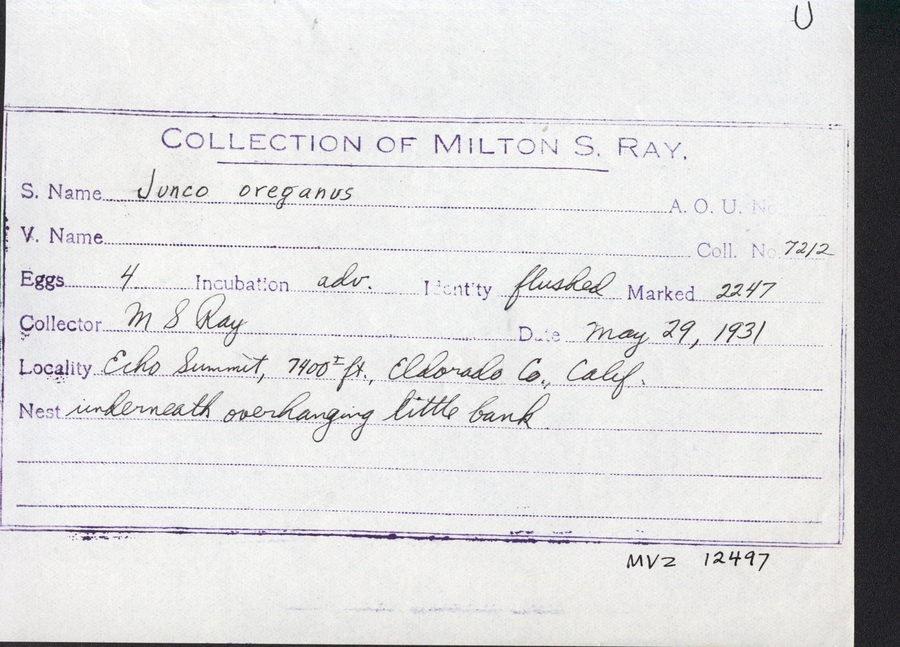 U
COLLECTION OF MILTON S. RAY.
S. Name Junco oreganus A. O. U. No
V. Name Coll. No. 7212
Eggs 4 Incubation adv. Identity flushed Marked 2247
Collector M S Ray Date May 29, 1931
Locality Echo Summit, 7400± ft., Eldorado Co., Calif.
Nest underneath overhanging little bank
MVZ 12497